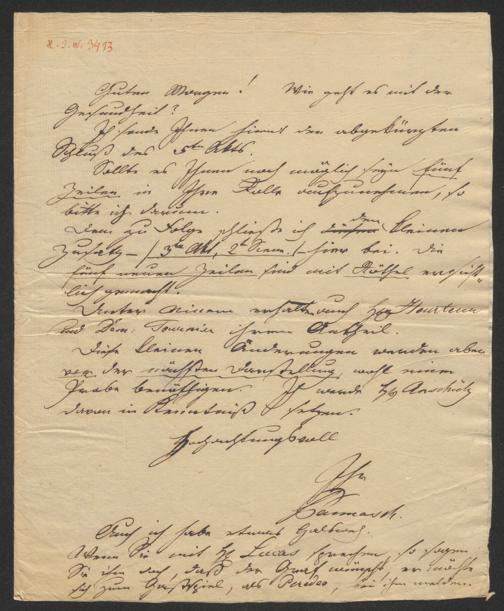 H. I. W. 3413
Guten Morgen! Wie geht es mit der
Gesundheit?
Ich sende Ihnen hiemit den abgekürzten
Schluß des 5ten Akts.
Sollte es Ihnen noch möglich seyn fünf
Zeilen in Ihre Rolle aufzunehmen, so
bitte ich darum.
Dem zu Folge schließe ich diesen den kleinen
Zusatz – /3te Akt, 2te Scen./ – hier bei. Die
fünf neuen Zeilen sind mit Röthel ersicht-
lich gemacht.
Unter Einem erhalten auch H
und Dem. ihren Antheil.
Diese kleinen Änderungen werden aber
vor der nächsten Darstellung wohl einer
Probe benöthigen. Ich werde H. Anschütz
davon in Kenntniß setzen.
Hochachtungsvoll
Ihr
Auch ich habe etwas Halsweh.
Wenn Sie mit H. Lucas sprechen, so sagen
Sie ihm doch, daß der Graf wünscht, er möchte
sich zum Gastspiel, als, bei ihm melden.